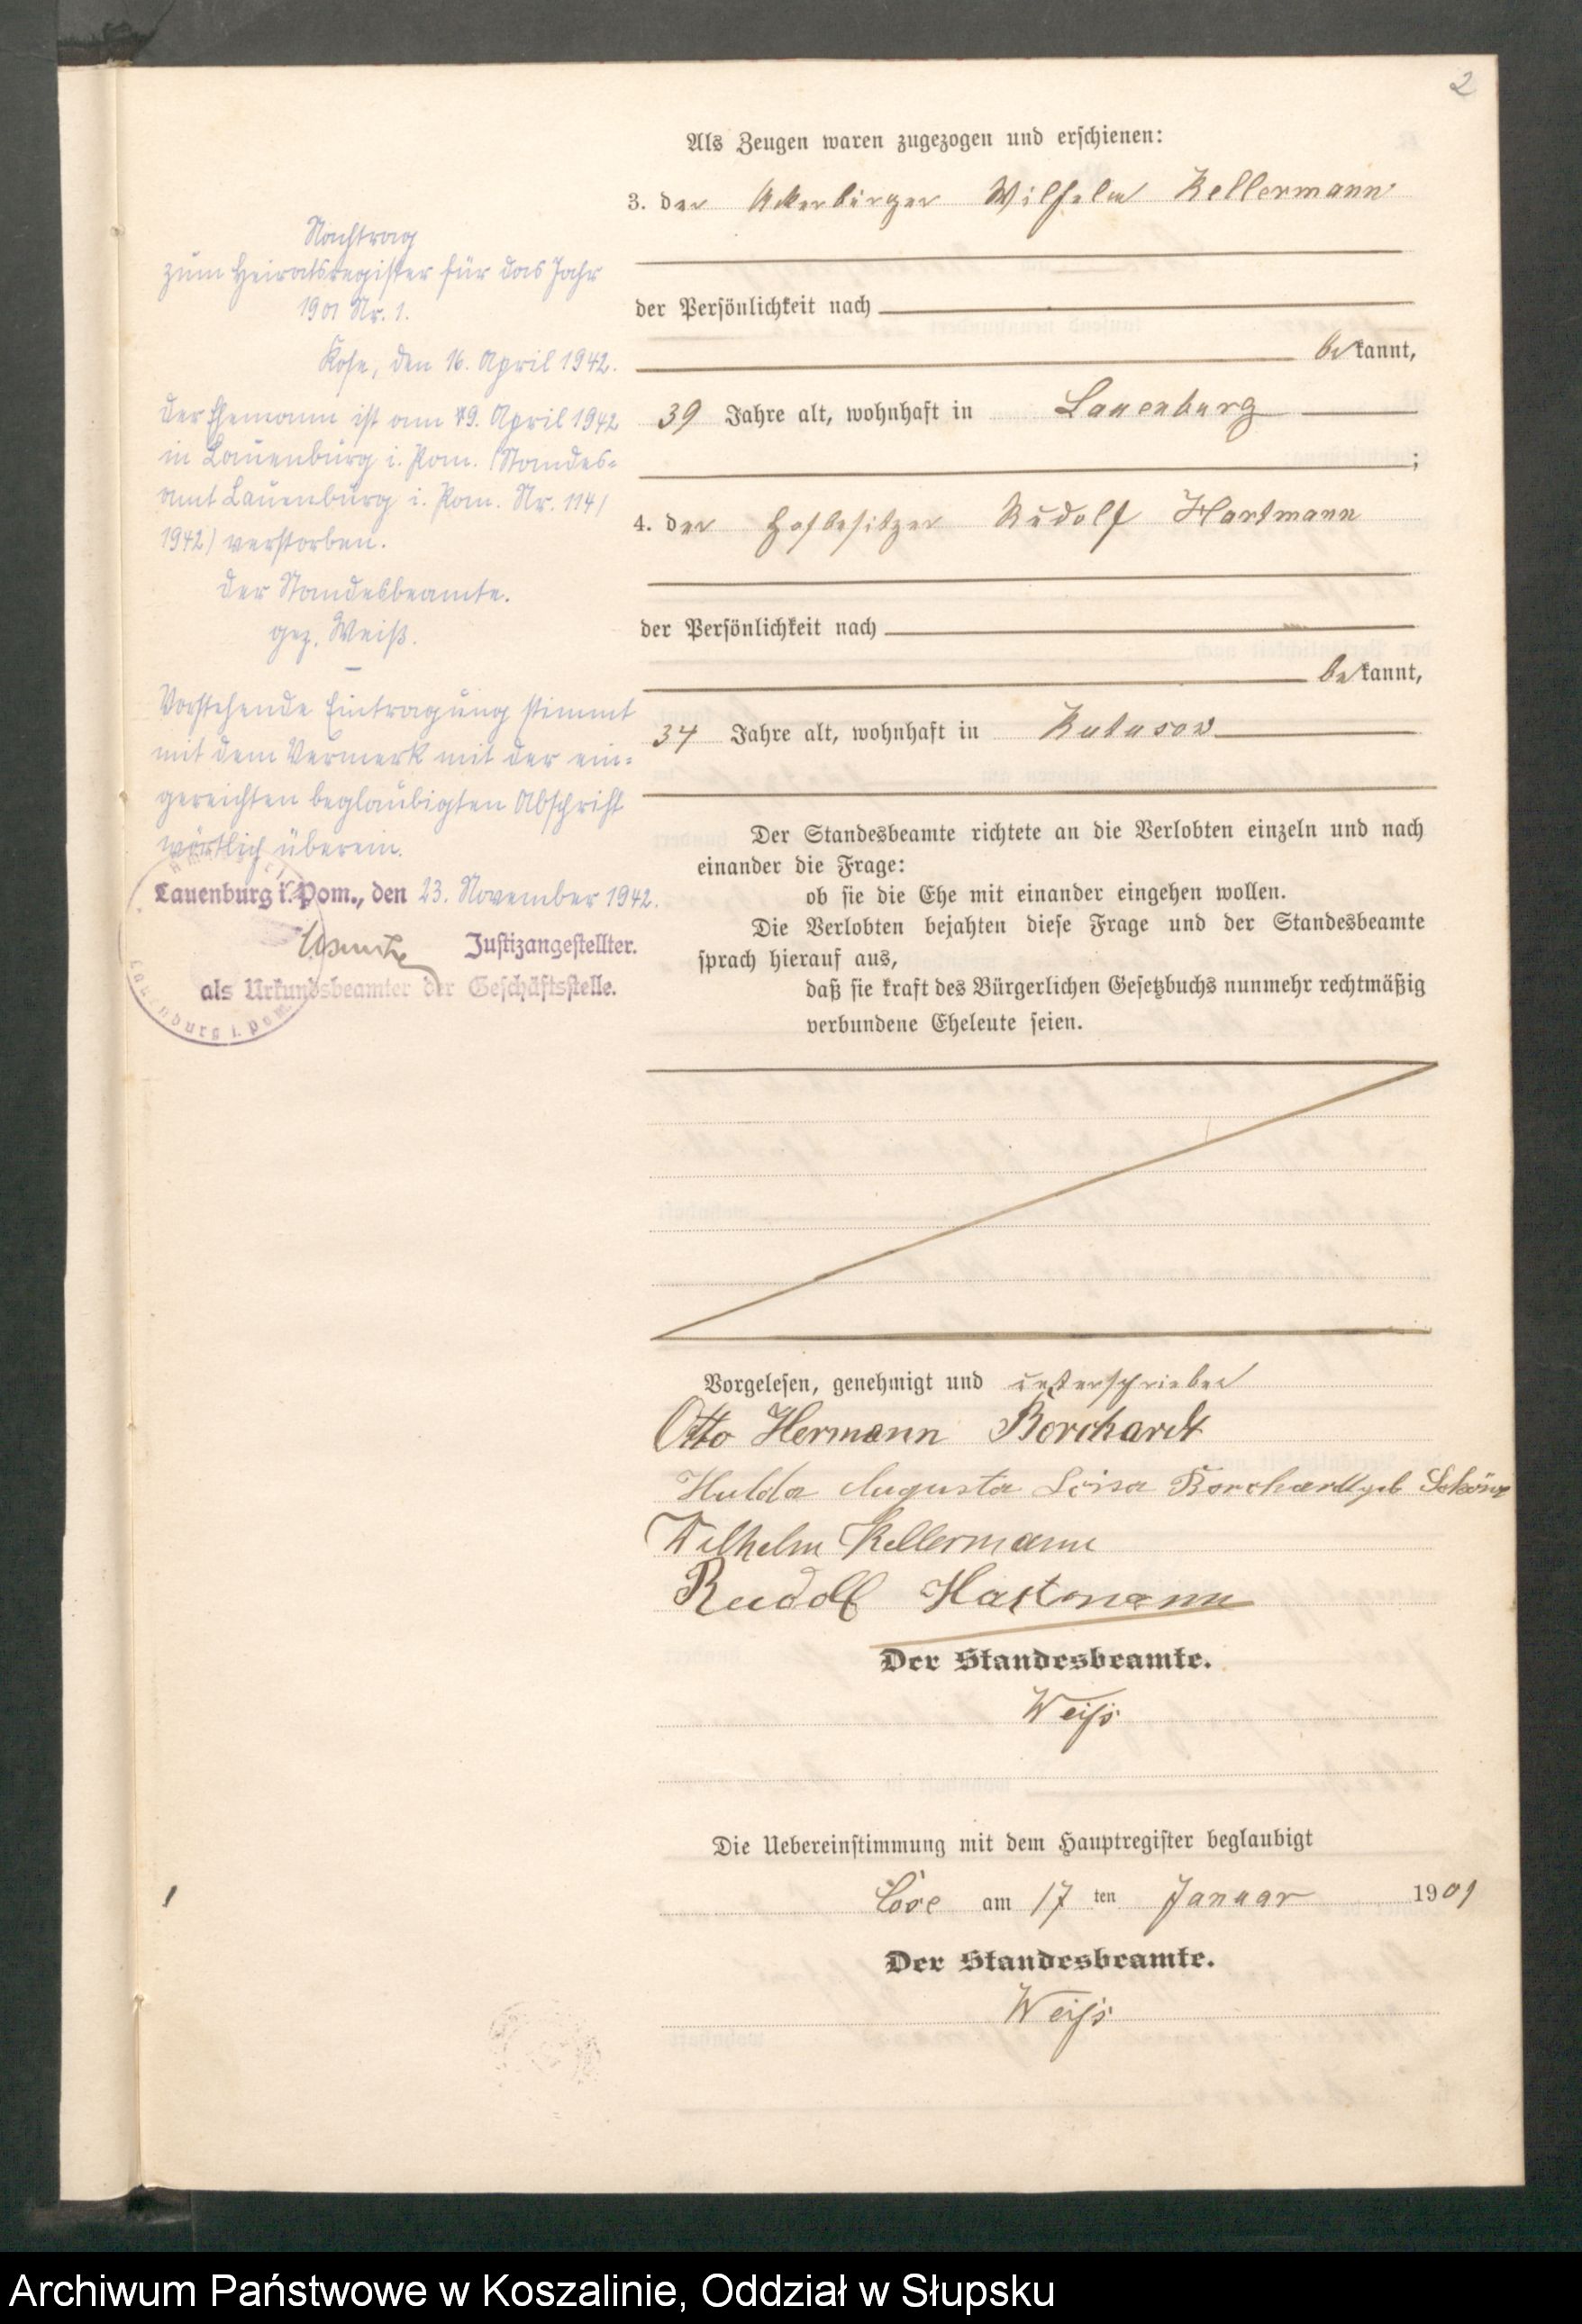 2
Als Zeugen waren zugezogen und erschienen:
3. der Ackerbürger Wilhelm Kellermann
der Persönlichkeit nach
bekannt,
39 Jahre alt, wohnhaft in Lauenburg
;
4. der Hofbesitzer Rudolf Hartmann
der Persönlichkeit nach
bekannt,
34 Jahre alt, wohnhaft in
Der Standesbeamte richtete an die Verlobten einzeln und nach
einander die Frage:
ob sie die Ehe mit einander eingehen wollen.
Die Verlobten bejahten diese Frage und der Standesbeamte
sprach hierauf aus,
daß sie kraft des Bürgerlichen Gesetzbuchs nunmehr rechtmäßig
verbundene Eheleute seien.
Vorgelesen, genehmigt und unterschrieben
Otto Hermann Borchardt
Hulda Augusta Borchardt geb
Wilhelm Kellermann
Rudolf Hartmann
Der Standesbeamte.
Weiß
Die Uebereinstimmung mit dem Hauptregister beglaubigt
am 17 ten Januar 1901
Der Standesbeamte.
Weiß
Nachtrag
zum Heiratsregister für das Jahr
1901 Nr. 1.
Kose, den 16. April 1942.
Der Ehemann ist am April 1942
in Lauenburg i. Pom. (Standes=
amt Lauenburg i. Pom. Nr. 114/
1942) verstorben.
Der Standesbeamte.
gez. Weiß.
Vorstehende Eintragung stimmt
mit dem Vermerk mit der ein=
gereichten beglaubigten Abschrift
wörtlich überein.
Lauenburg i. Pom., den 23. November 1942.
Justizangestellter.
als Urkundsbeamter der Geschäftsstelle.
Lauenburg i. Pom.
Archiwum Państwowe w Koszalinie, Oddział w Słupsku